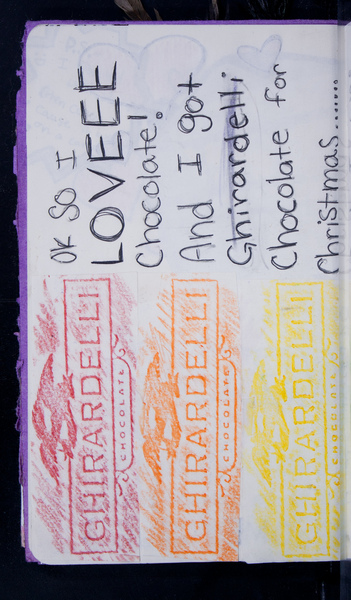 OK SO I
LOVEEE
Chocolate!
And I got
Ghirardelli
Chocolate for
Christmas.......
GHIRARDELLI
CHOCOLATE
GHIRARDELLI
CHOCOLATE
GHIRARDELLI
CHOCOLATE